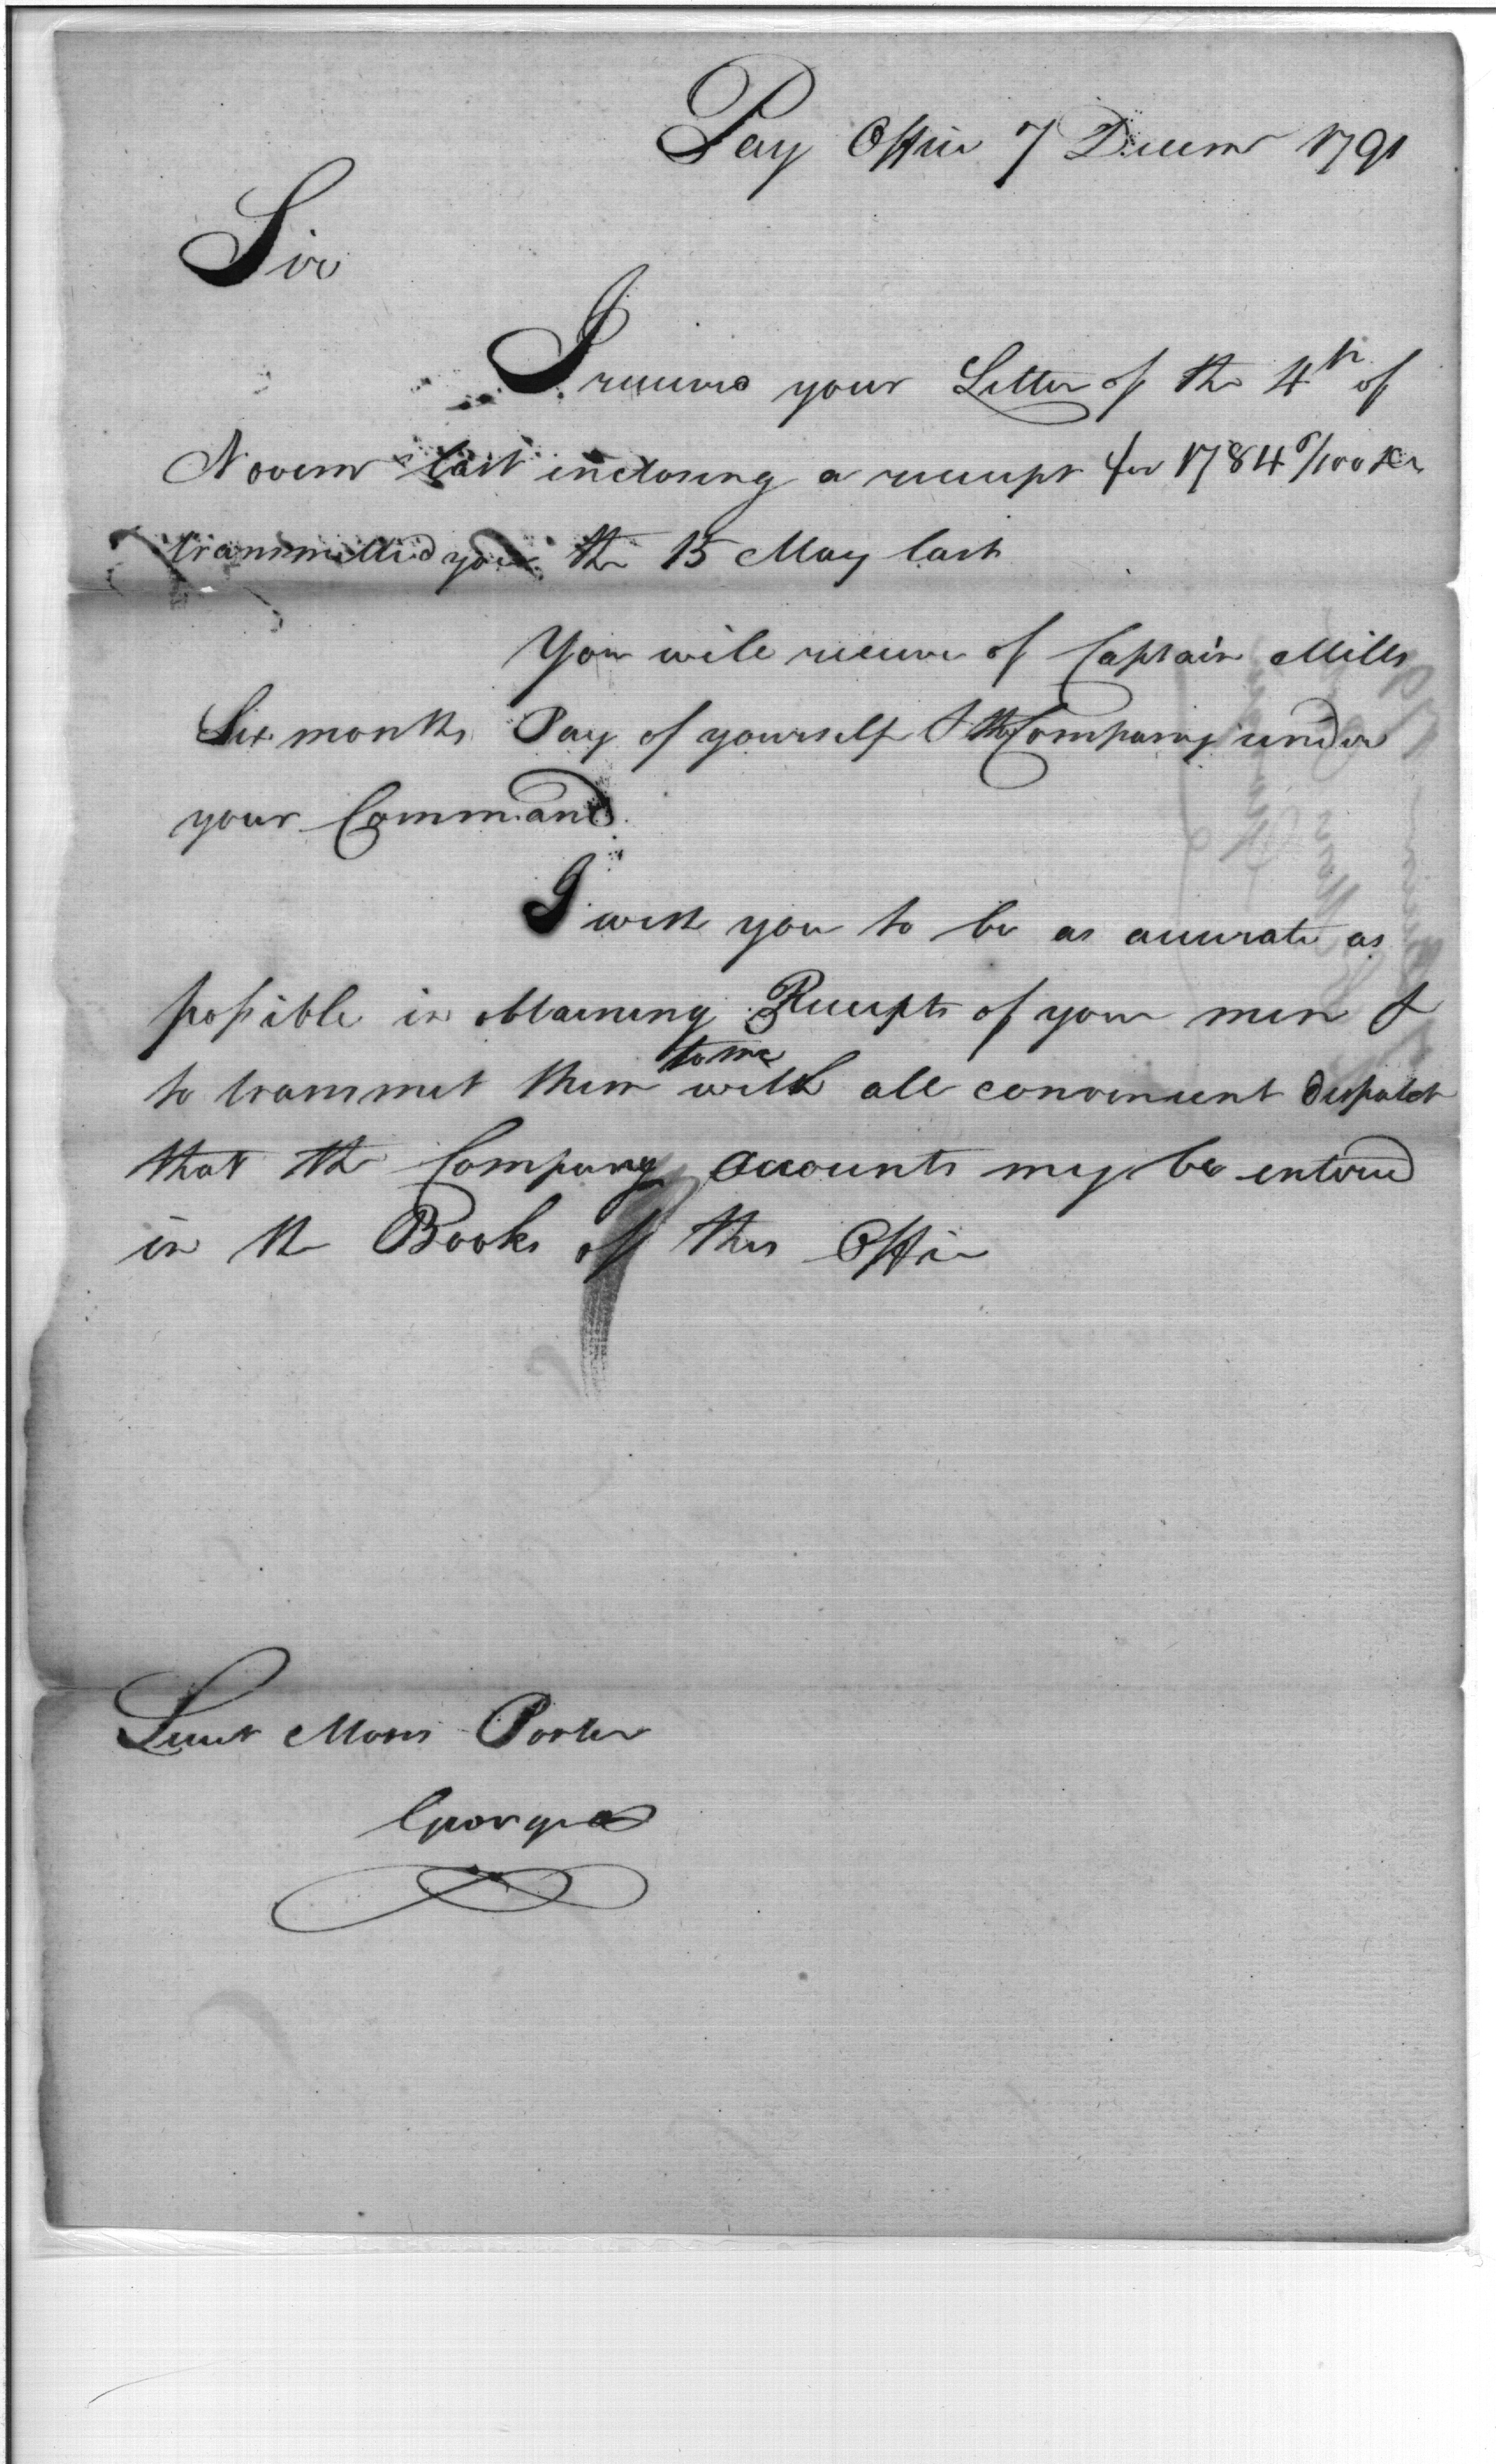 Pay Office 7 Decemr 1791
Sir
I received your Letter of the 4th of
Novemr last inclosing a receipt for 1784 6/100 Drs
transmitted you the 15 May last
You will receive of Captain Mills
Six months Pay of yourself & the Company under
your Command.
I wish you to be as accurate as
possible in obtaining Receipts of your men &
to transmit them to me with all convenient dispatch
that the Company accounts may be entered
in the Books of this Office
Lieut Moses Porter
Georgia